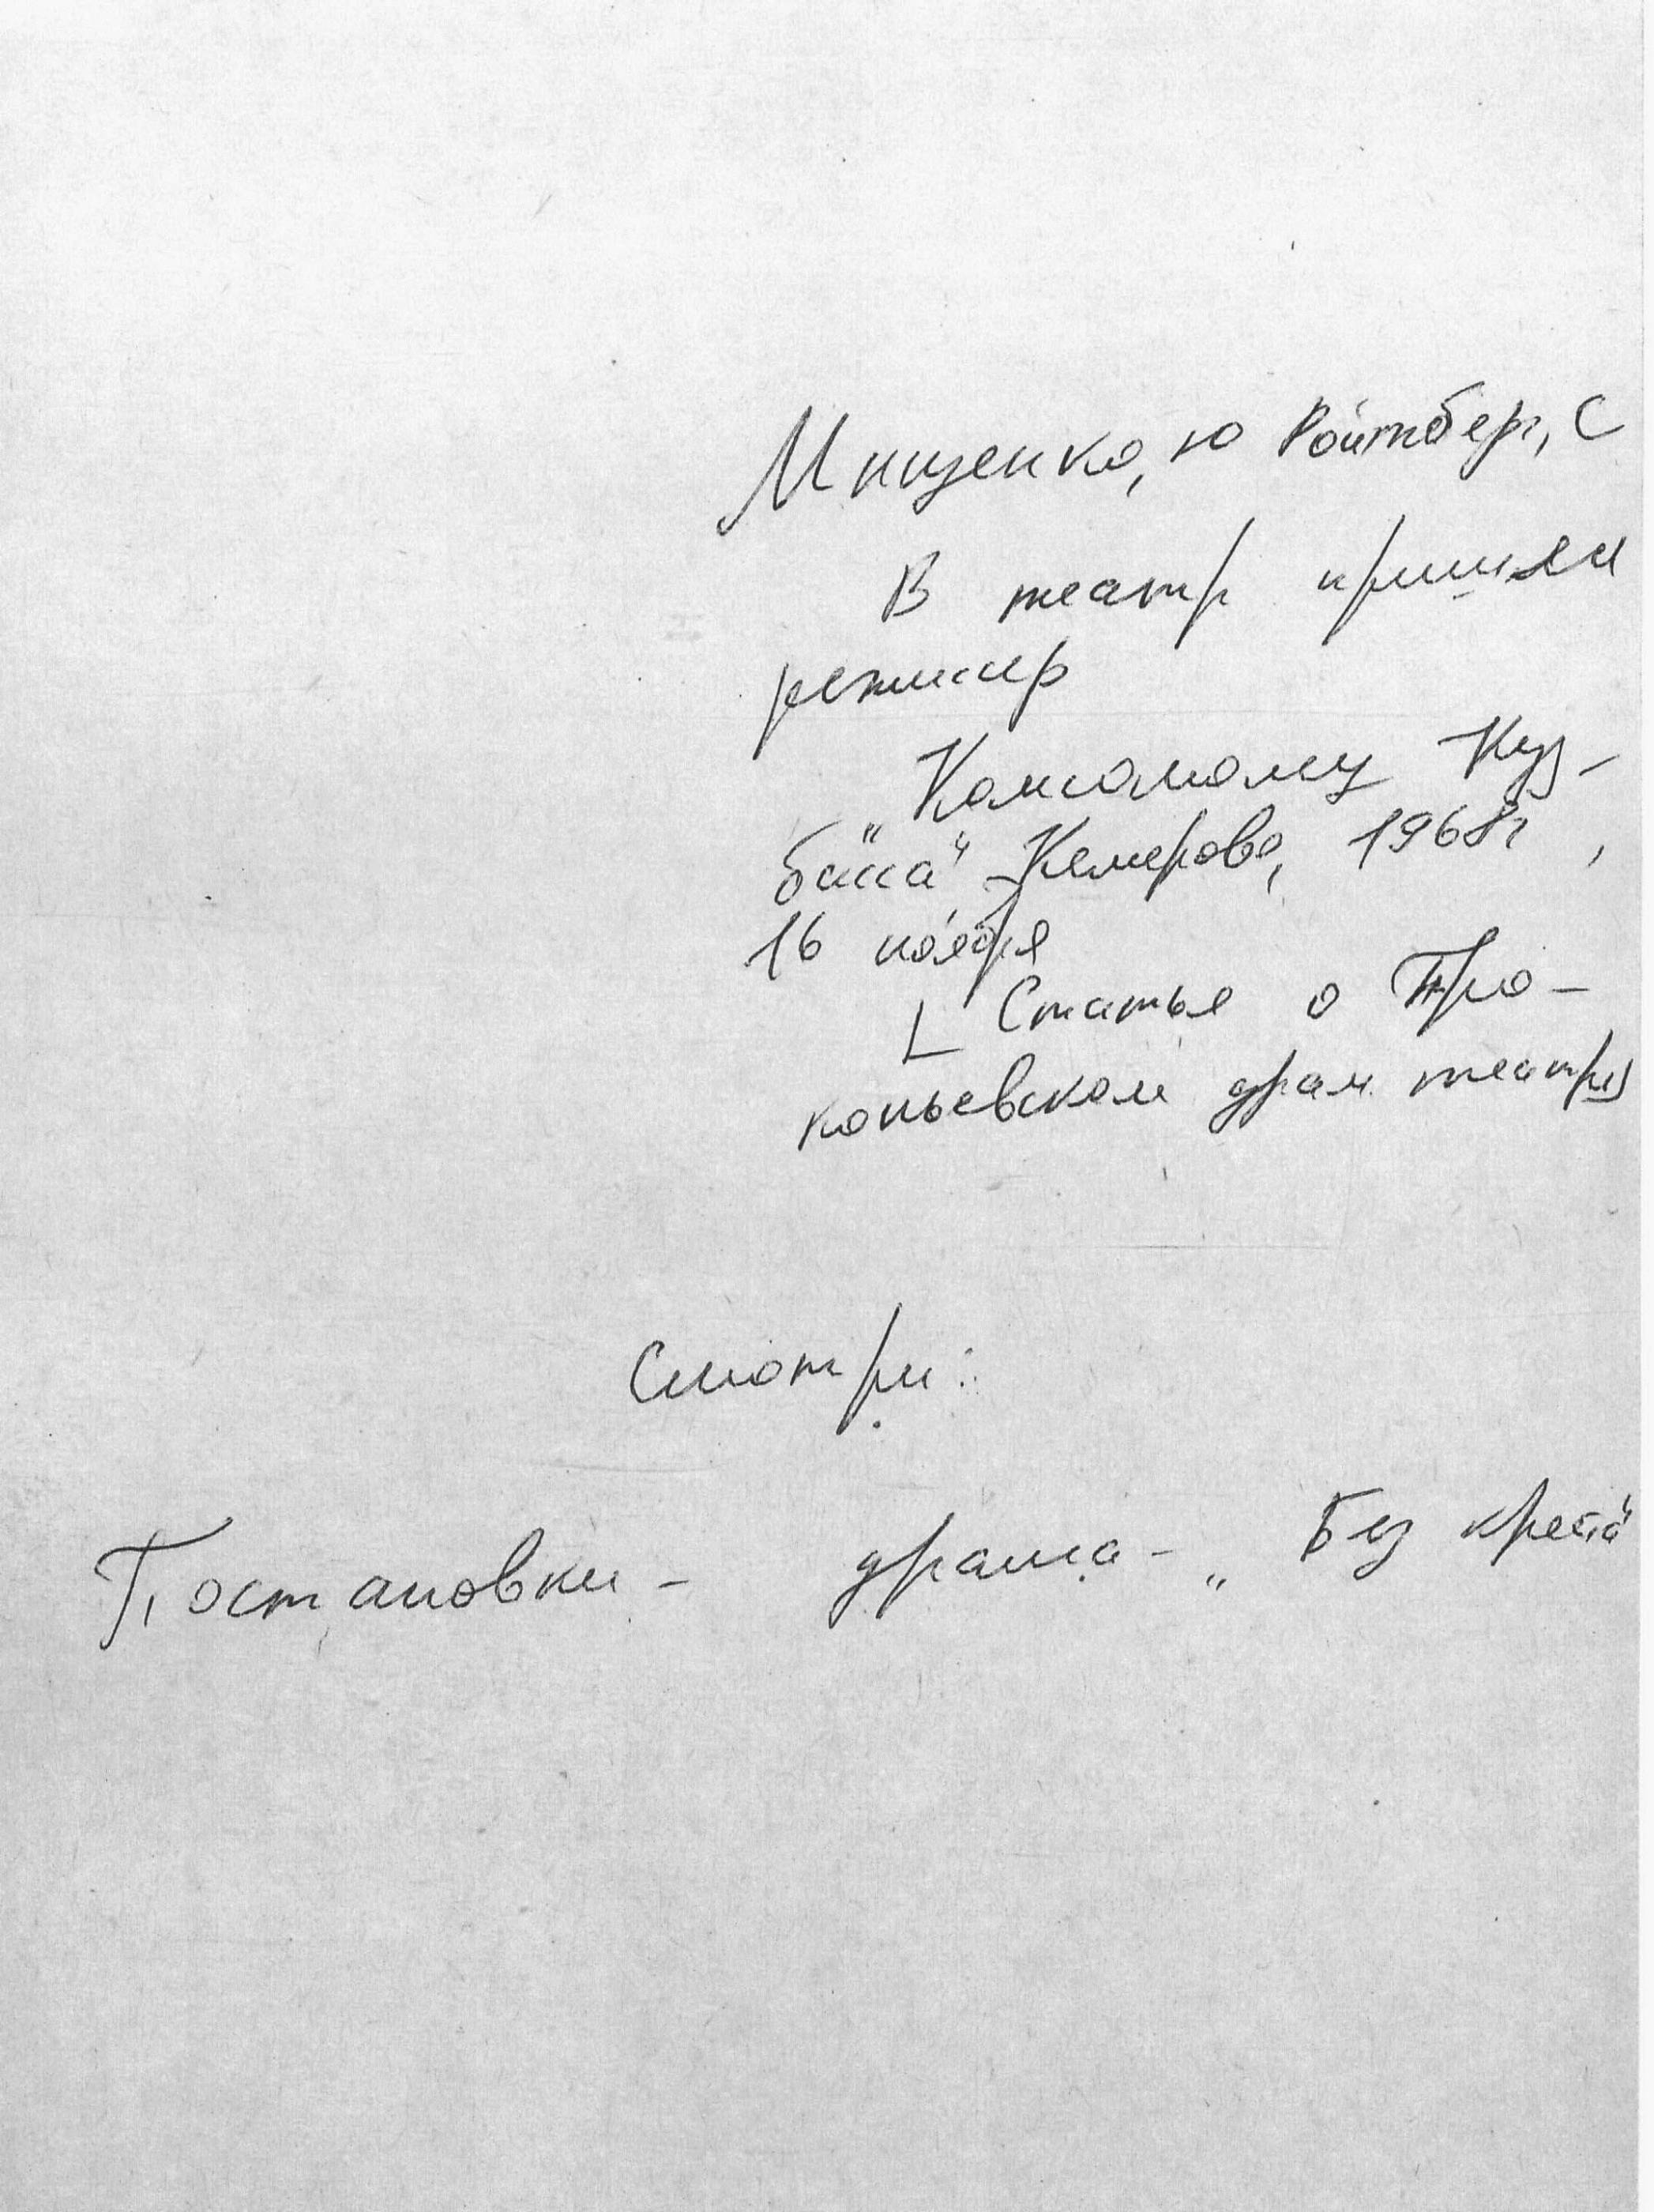 Мищенко, Ю Ройтберг, С
В театр пришел
режиссер
„Комсомолец Куз-
басса" Кемерово, 1968г,
16 ноября
[ Статья о Про-
копьевском драм. театре
Смотри:
Постановки - драма - „ Без креста"